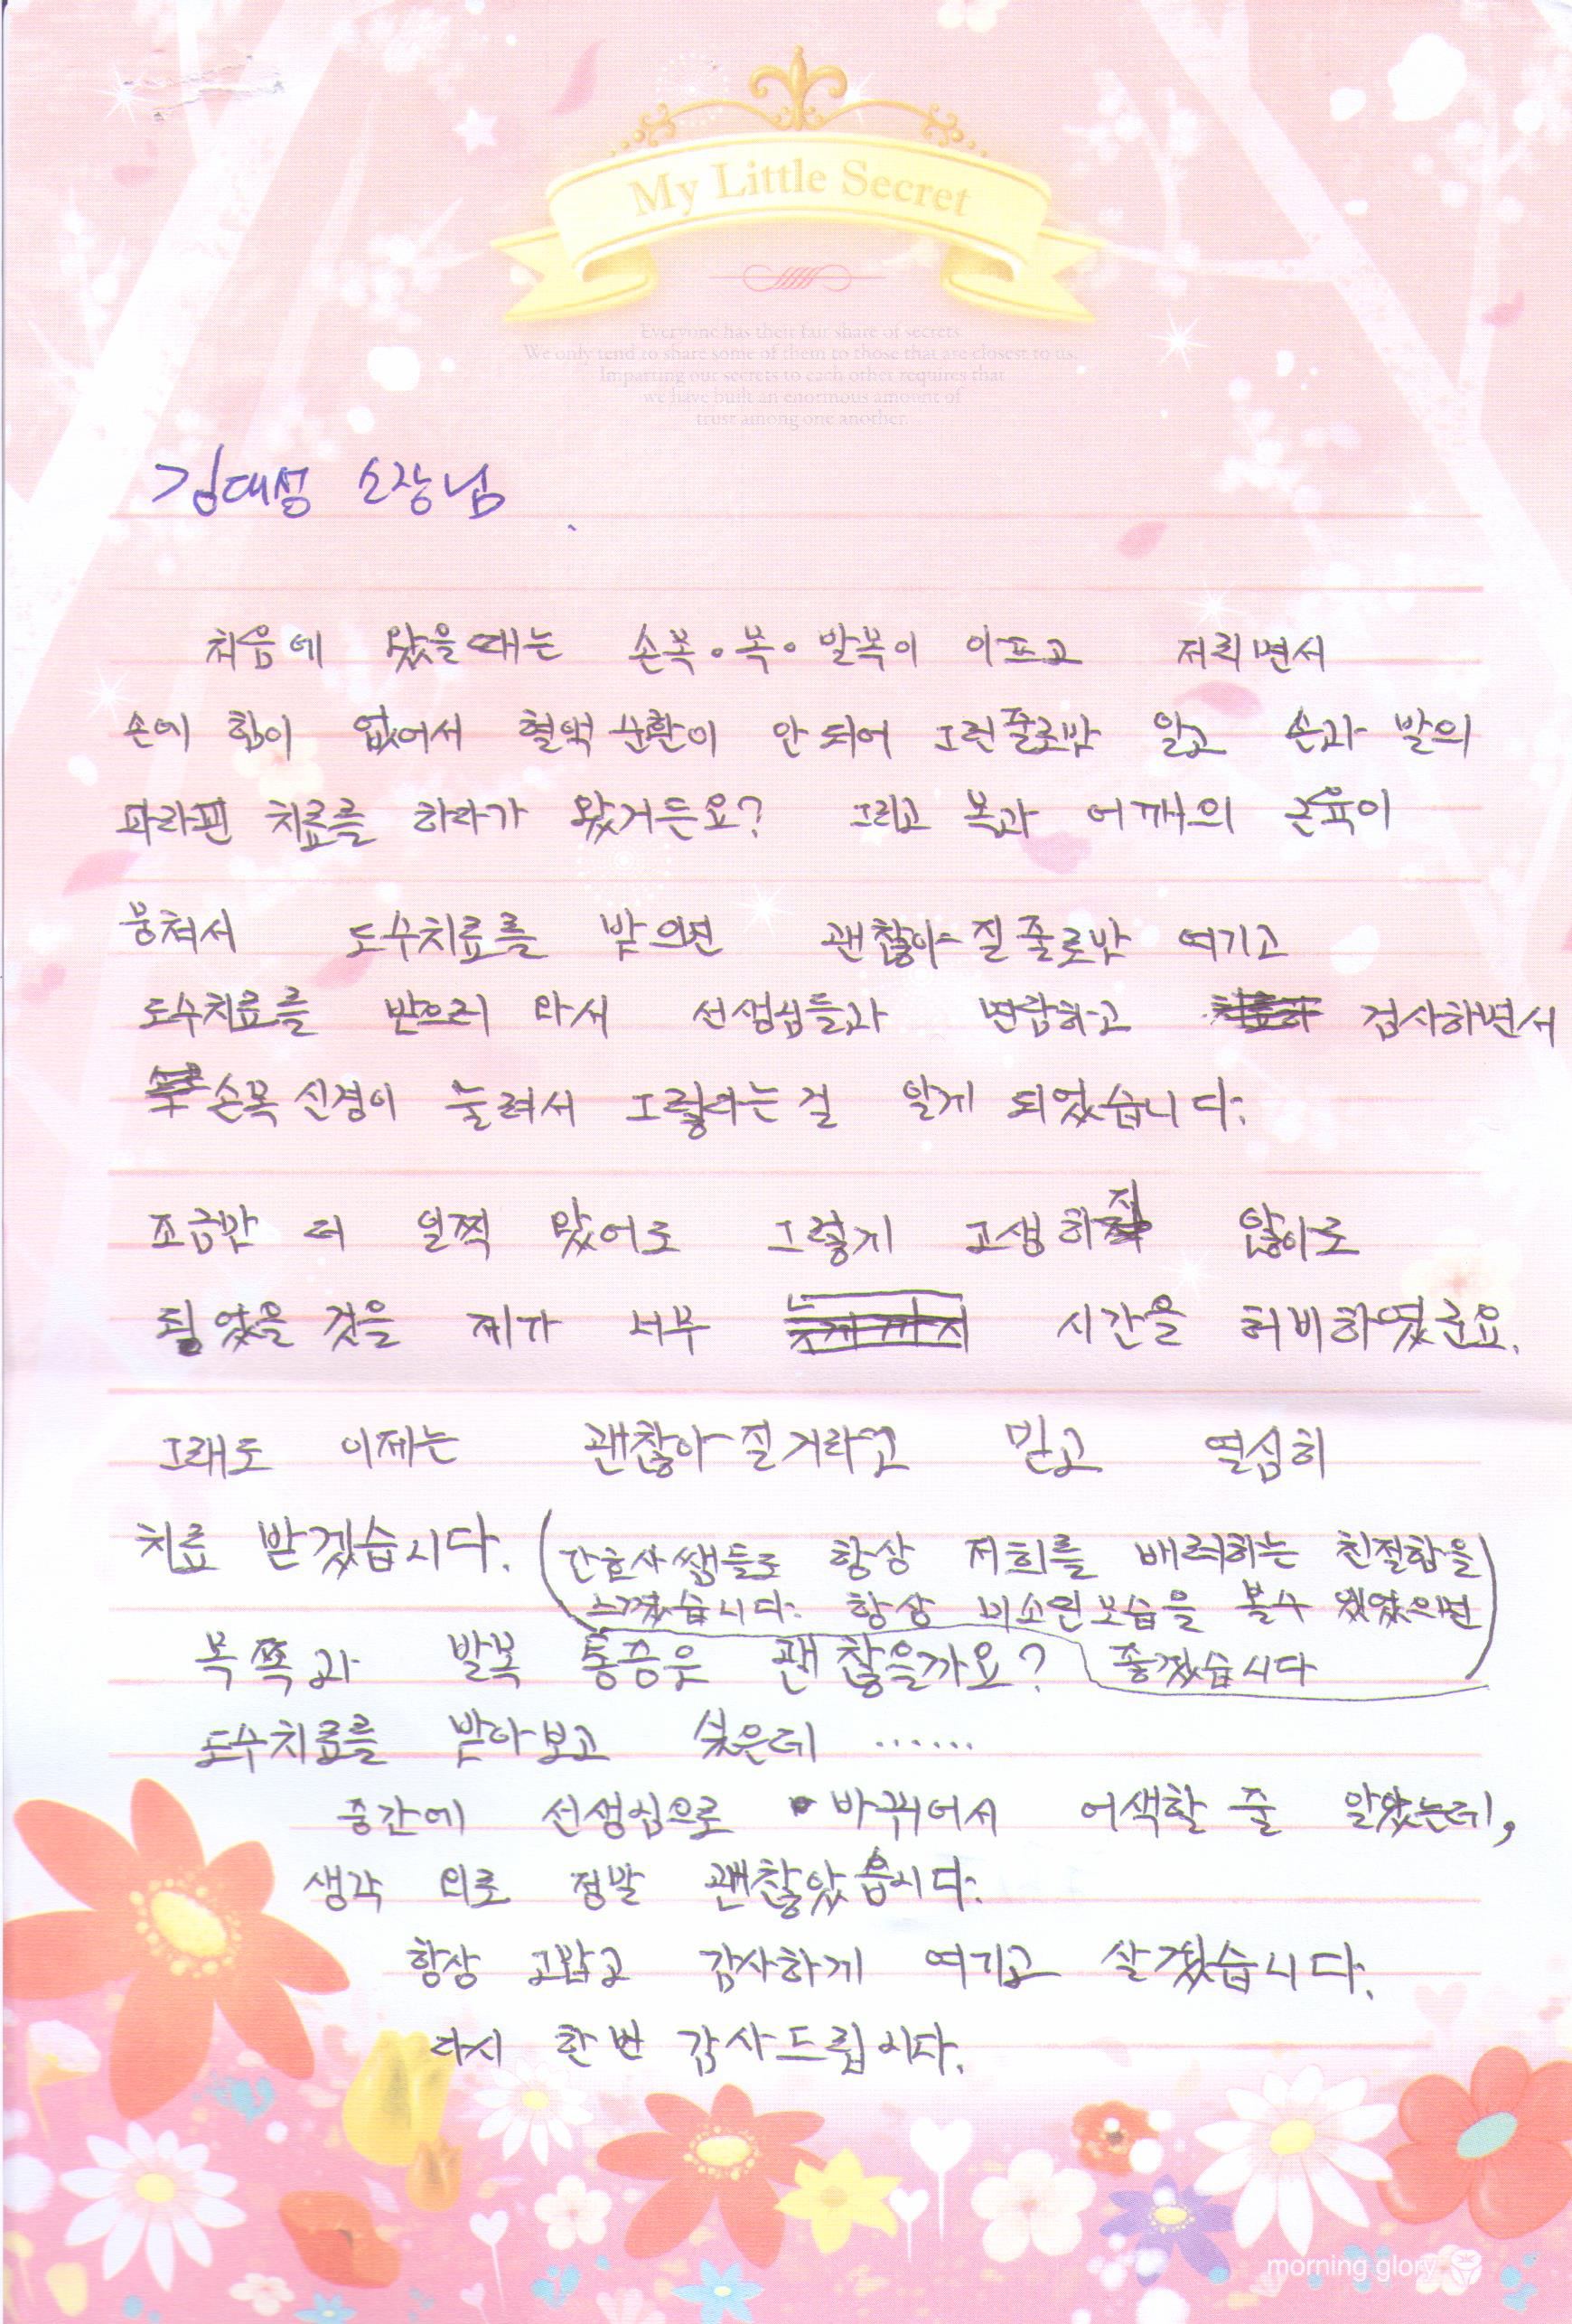 My Little Secret
Everyone has their fair share of secrets.
We only tend to share some of them to those that are closest to us.
Imparting our secrets to each other requires that
we have built an enormous amount of
trust among one another.
김대성 소장님
처음에 왔을때는 손목·목·발목이 아프고 저리면서
손에 힘이 없어서 혈액 순환이 안 되어 그런줄로만 알고 손과 발의
파라핀 치료를 하러가 왔거든요? 그리고 목과 어깨의 근육이
뭉쳐서 도수치료를 받으면 괜찮아 질 줄로만 여기고
도수치료를 받으러 와서 선생님들과 면담하고 검사하면서
손목 신경이 눌려서 그렇다는 걸 알게 되었습니다.
조금만 더 일찍 왔어도 그렇게 고생하지 않아도
될 었을 것을 제가 너무 시간을 허비하였군요.
그래도 이제는 괜찮아 질거라고 믿고 열심히
치료 받겠습니다.
(간호사쌤들도 항상 저희를 배려하는 친절함을
느꼈습니다. 항상 미소띤모습을 볼수 있었으면
좋겠습니다)
목쪽과 발목 통증은 괜찮을까요?
도수치료를 받아보고 싶은데 ······
중간에 선생님으로 바뀌어서 어색할 줄 알았는데,
생각 외로 정말 괜찮았습니다.
항상 고맙고 감사하게 여기고 살겠습니다.
다시 한번 감사드립니다.
morning glory